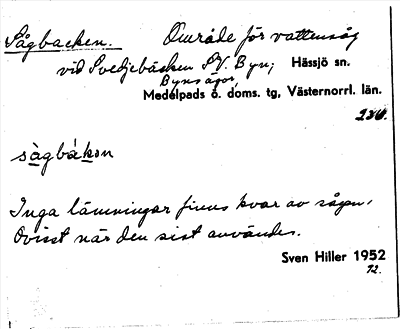 Sågbacken. Område för vattensåg
vid Svedjebäcken S.V. Byn; Hässjö sn.
Byns ägor,
Medelpads ö. doms. tg, Västernorrl. län.
sàgbákɐn
Inga lämningar finns kvar av sågen,
Ovisst när den sist användes.
Sven Hiller 1952
72.